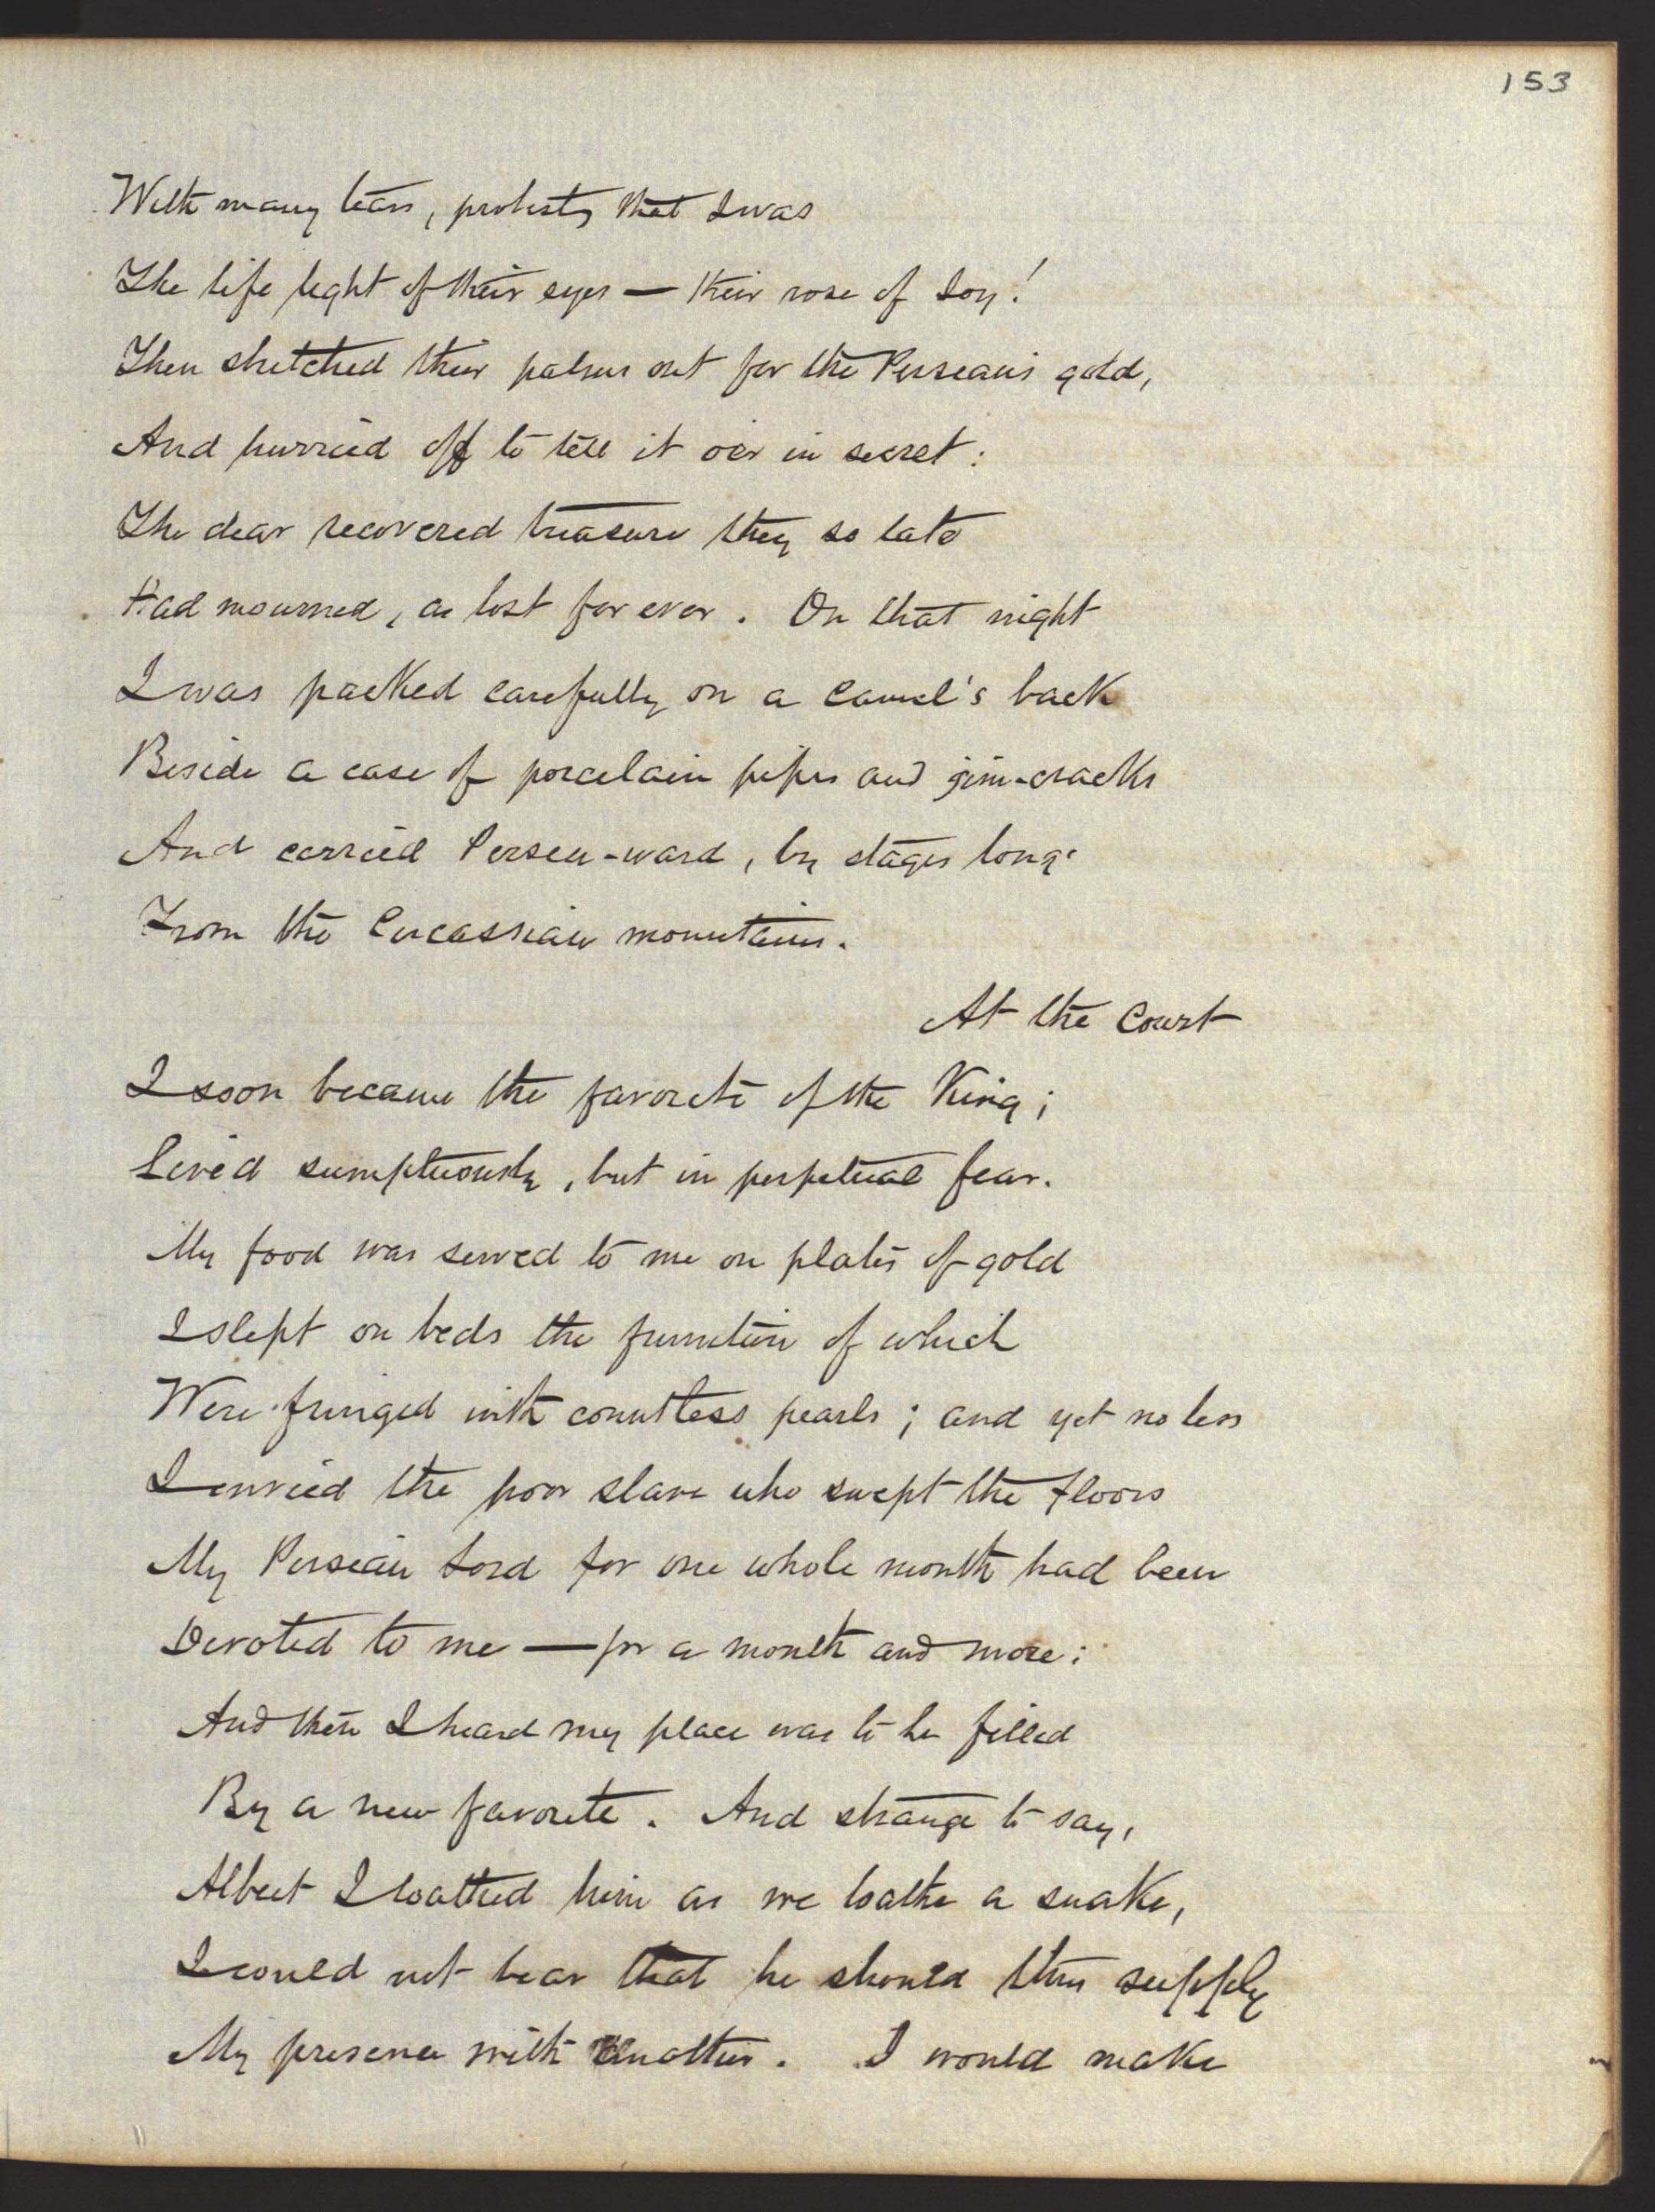 153
With many tears, protesty that I was
The life light of their eyes — their rose of Joy!
Then stretched their palms out for the Persian's gold,
And hurried off to tell it o'er in secret:
The dear recovered treasure they so late
Had mourned, as lost for ever. On that night
I was packed carefully on a camel's back
Beside a case of porcelain pipes and gim-cracks
And carried Persia-ward, by stages long
From the Circassian mountains.
At the Court
I soon became the favorite of the King;
Lived sumptuously, but in perpetual fear.
My food was served to me on plates of gold
I slept on beds the furniture of which
Were fringed with countless pearls; and yet no less
I envied the poor slave who swept the floors
My Persian Lord for one whole month had been
Devoted to me — for a month and more:
And then I heard my place was to be filled
By a new favorite. And strange to say,
Albeit I loathed him as we loathe a snake,
I could not bear that he should thus supply
My presence with another. I would make